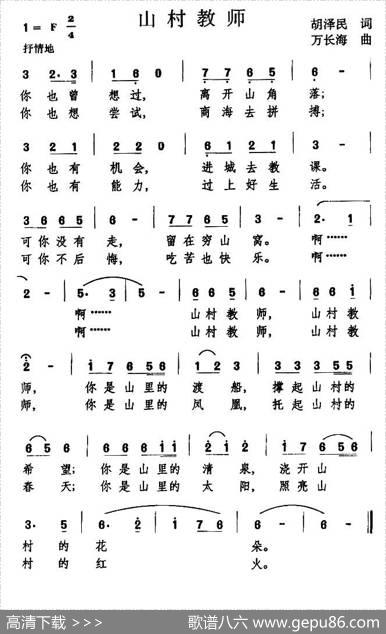 山村教师
1 = F 2/4
胡泽民 词
万长海 曲
抒情地
3 2·3 | 1 6 0 | 7 7 6 5 | 6 - |
你也曾 想过, 离开山角 落;
你也想 尝试, 商海去拼 搏;
3 2 1 | 2 2 2 0 | 6 1 2 1 | 3 - |
你也有 机会, 进城去教 课。
你也有 能力, 过上好生 活。
3 6 6 5 | 6 - | 7 7 6 5 | 3 - | 2· 1 |
可你没有 走, 留在穷山 窝。 啊……
可你不后 悔, 吃苦也快 乐。 啊……
2 - | 5· 3 | 5 - | 6 6 5 | 6 - | 6 6 1 |
啊…… 山村教 师, 山村教
啊…… 山村教 师, 山村教
2 - | 1 7 6 5 6 | 1 2 3 | 3 3 3 5 5 |
师, 你是山里的 渡 船, 撑起山村的
师, 你是山里的 凤 凰, 托起山村的
6 5 6 | 6 6 6 1 1 | 2 1 2 | 1 7 6 5 6 |
希 望; 你是山里的 清 泉, 浇开山
春 天; 你是山里的 太 阳, 照亮山
3· 5 | 6· 2 | 1 7 6 | 6 - | 6 - ‖
村 的 花 朵。
村 的 红 火。
高清下载 >>>
歌谱八六 www.gepu86.com